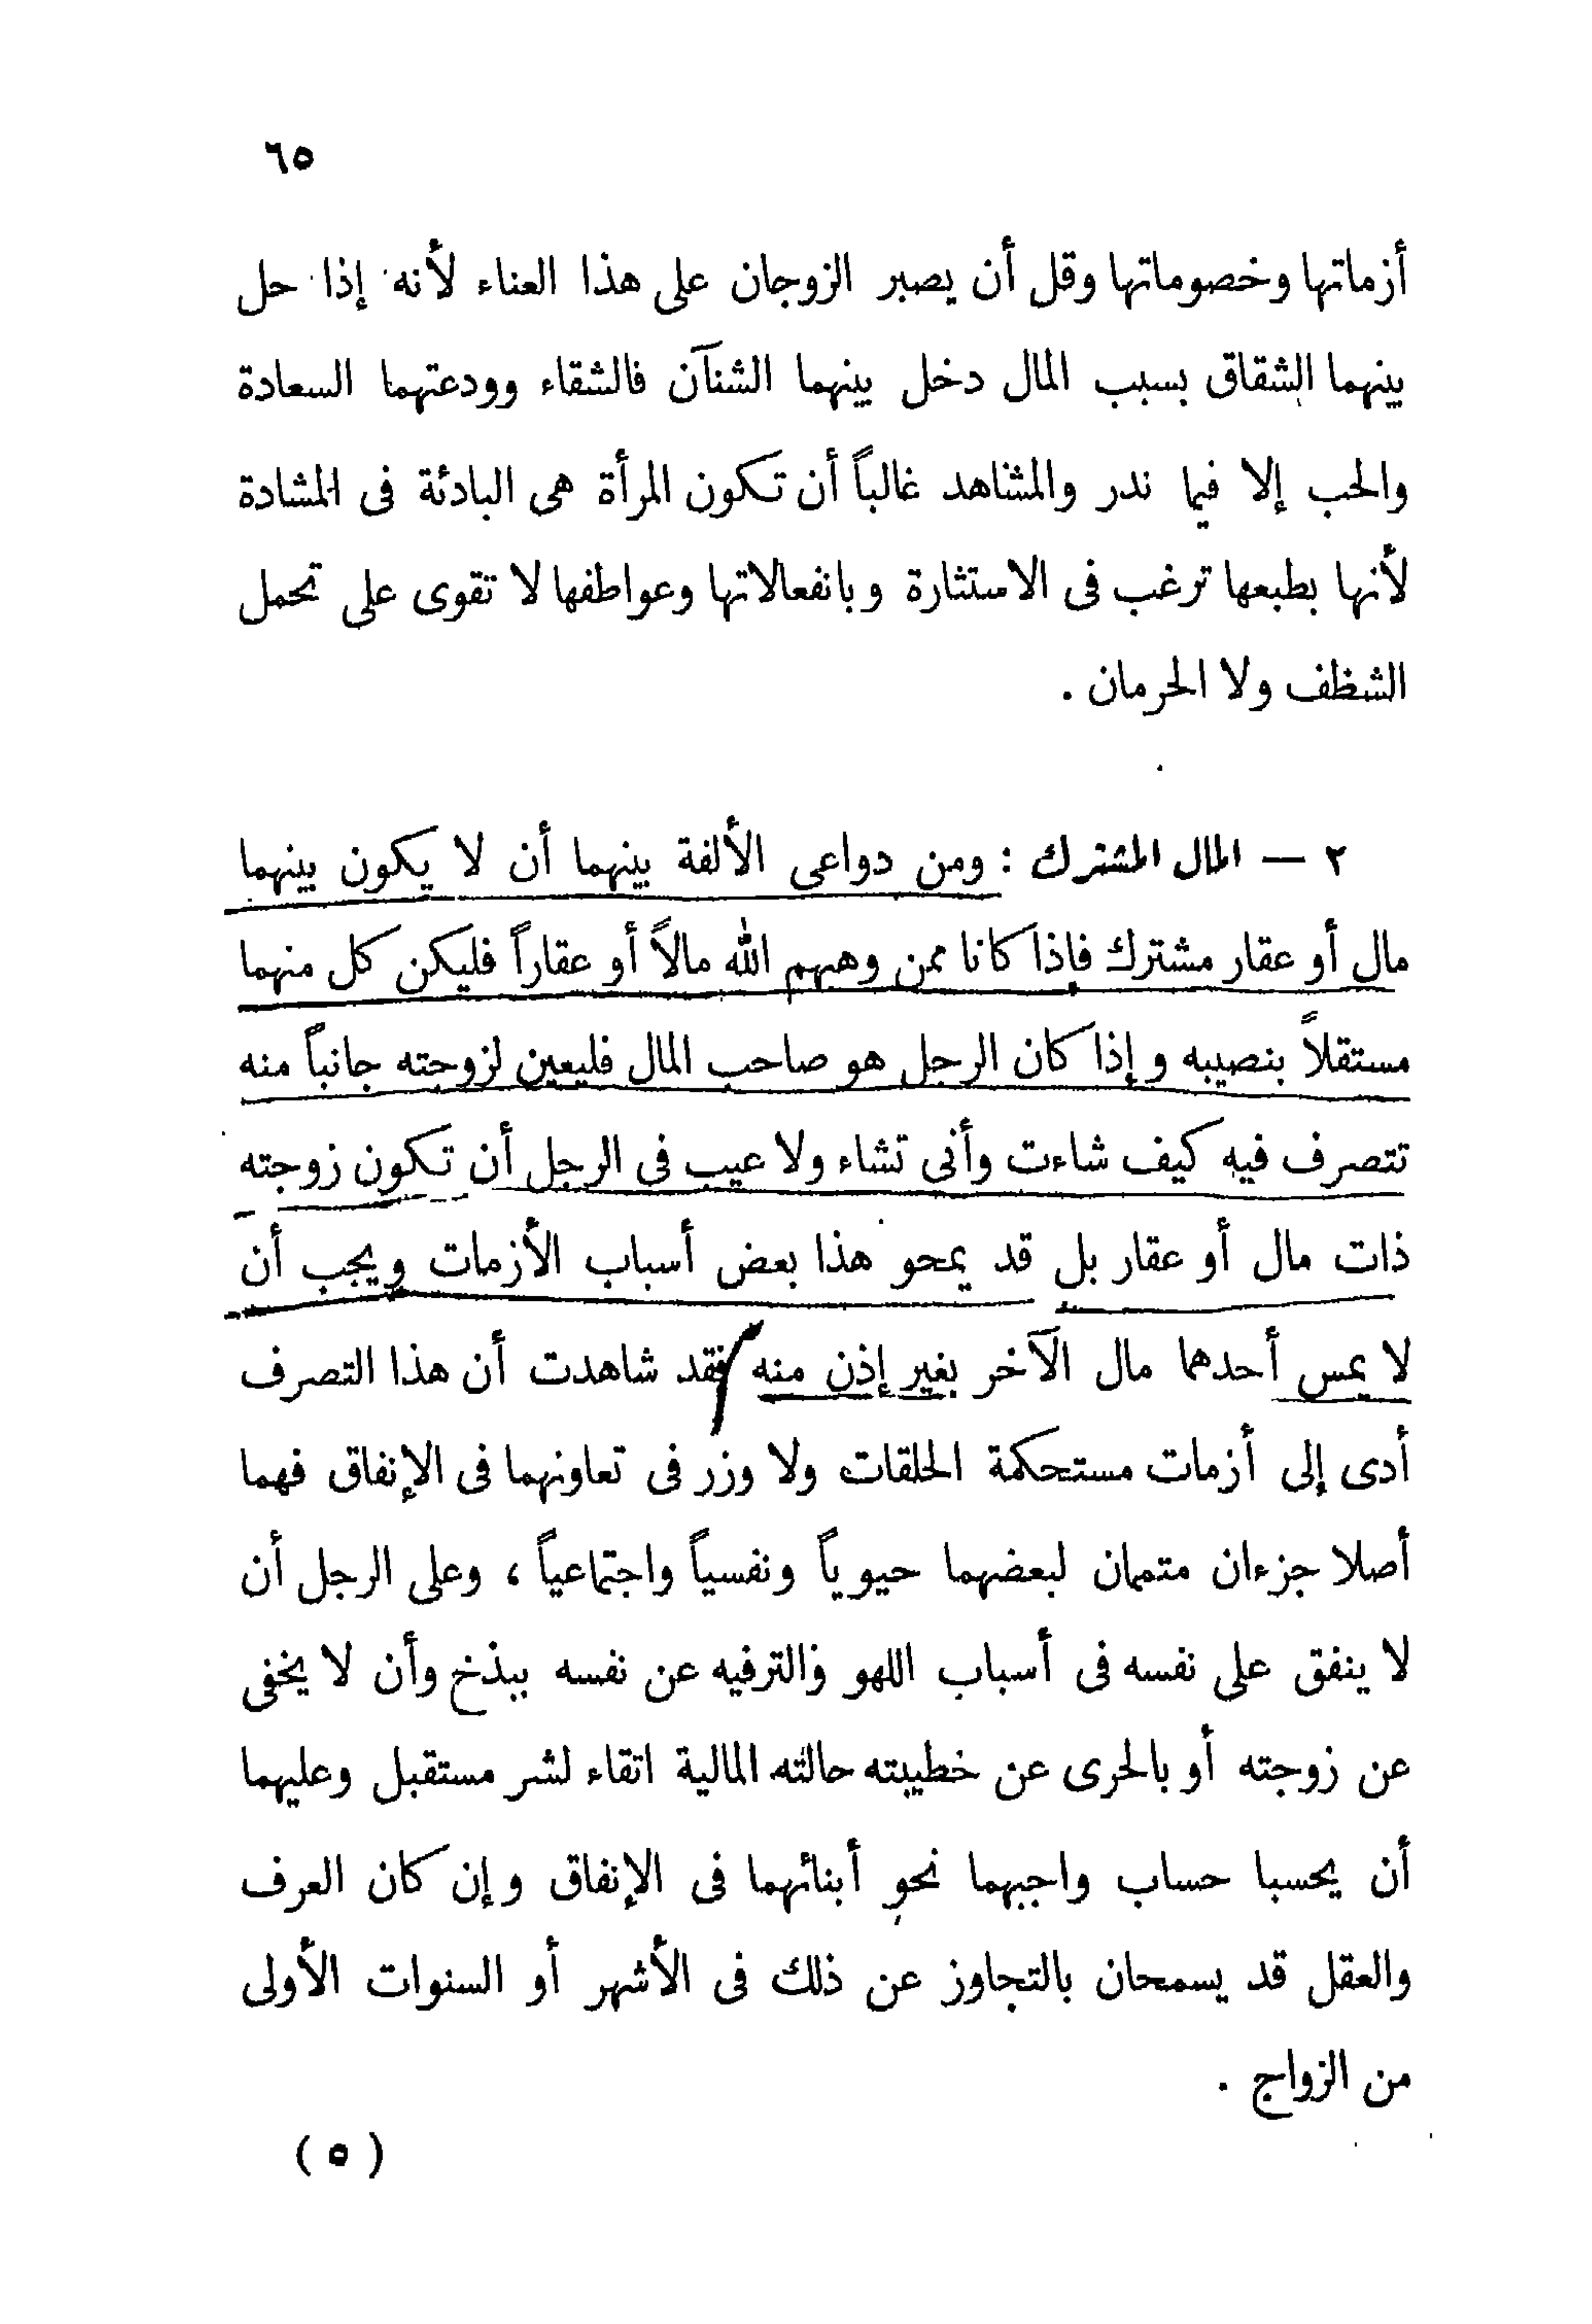 ٦٥
أزماتها وخصوماتها وقل أن يصبر الزوجان على هذا العناء لأنه إذا حل
بينهما الشقاق بسبب المال دخل بينهما الشنآن فالشقاء وودعتهما السعادة
والحب إلا فيما ندر والمشاهد غالباً أن تكون المرأة هى البادئة فى المشادة
لأنها بطبعها ترغب فى الاستثارة وبانفعالاتها وعواطفها لا تقوى على تحمل
الشظف ولا الحرمان .
٢ — المال المشترك : ومن دواعى الألفة بينهما أن لا يكون بينهما
مال أو عقار مشترك فإذا كانا ممن وهبهم الله مالاً أو عقاراً فليكن كل منهما
مستقلاً بنصيبه وإذا كان الرجل هو صاحب المال فليعين لزوجته جانباً منه
تتصرف فيه كيف شاءت وأنى تشاء ولا عيب فى الرجل أن تكون زوجته
ذات مال أو عقار بل قد يمحو هذا بعض أسباب الأزمات ويجب أن
لا يمس أحدهما مال الآخر بغير إذن منه فقد شاهدت أن هذا التصرف
أدى إلى أزمات مستحكمة الحلقات ولا وزر فى تعاونهما فى الإنفاق فهما
أصلا جزءان متممان لبعضهما حيوياً ونفسياً واجتماعياً ، وعلى الرجل أن
لا ينفق على نفسه فى أسباب اللهو والترفيه عن نفسه ببذخ وأن لا يخفى
عن زوجته أو بالحرى عن خطيبته حالته المالية اتقاء لشر مستقبل وعليهما
أن يحسبا حساب واجبهما نحو أبنائهما فى الإنفاق وإن كان العرف
والعقل قد يسمحان بالتجاوز عن ذلك فى الأشهر أو السنوات الأولى
من الزواج .
( ٥ )